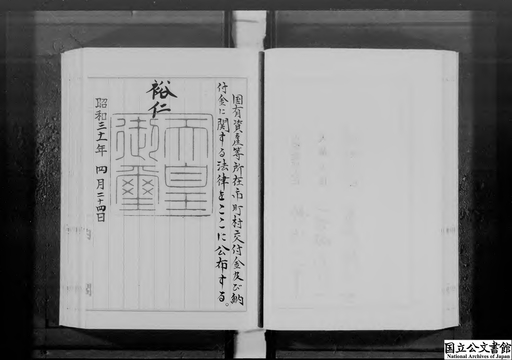 国有資産等所在市町村交付金及び納
付金に関する法律をここに公布する。
裕仁
天皇
御璽
昭和三十一年 四月二十四日
国立公文書館
National Archives of Japan